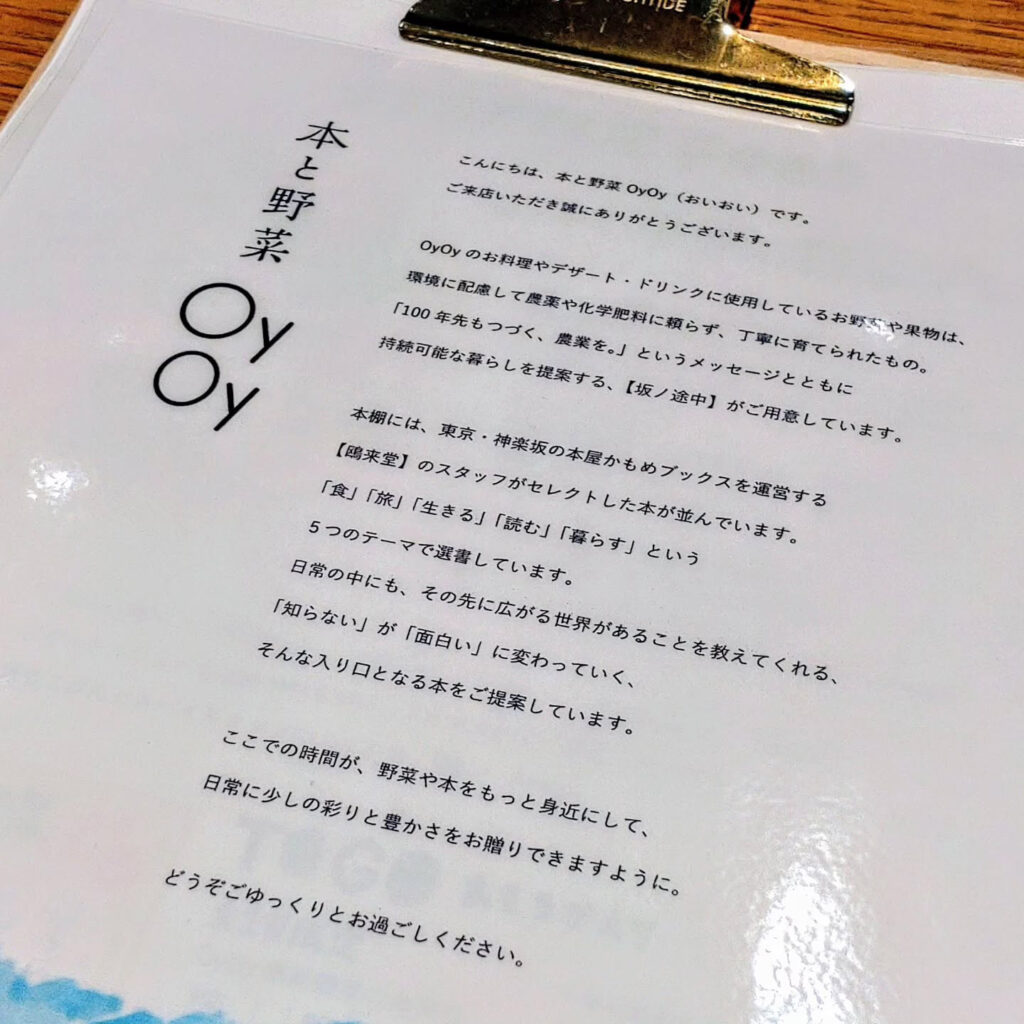 本と野菜
Oy
Oy
こんにちは、本と野菜 OyOy（おいおい）です。
ご来店いただき誠にありがとうございます。
OyOy のお料理やデザート・ドリンクに使用しているお野菜や果物は、
環境に配慮して農薬や化学肥料に頼らず、丁寧に育てられたもの。
「100 年先もつづく、農業を。」というメッセージとともに
持続可能な暮らしを提案する、【坂ノ途中】がご用意しています。
本棚には、東京・神楽坂の本屋かもめブックスを運営する
【鴎来堂】のスタッフがセレクトした本が並んでいます。
「食」「旅」「生きる」「読む」「暮らす」という
5 つのテーマで選書しています。
日常の中にも、その先に広がる世界があることを教えてくれる、
「知らない」が「面白い」に変わっていく、
そんな入り口となる本をご提案しています。
ここでの時間が、野菜や本をもっと身近にして、
日常に少しの彩りと豊かさをお贈りできますように。
どうぞごゆっくりとお過ごしください。